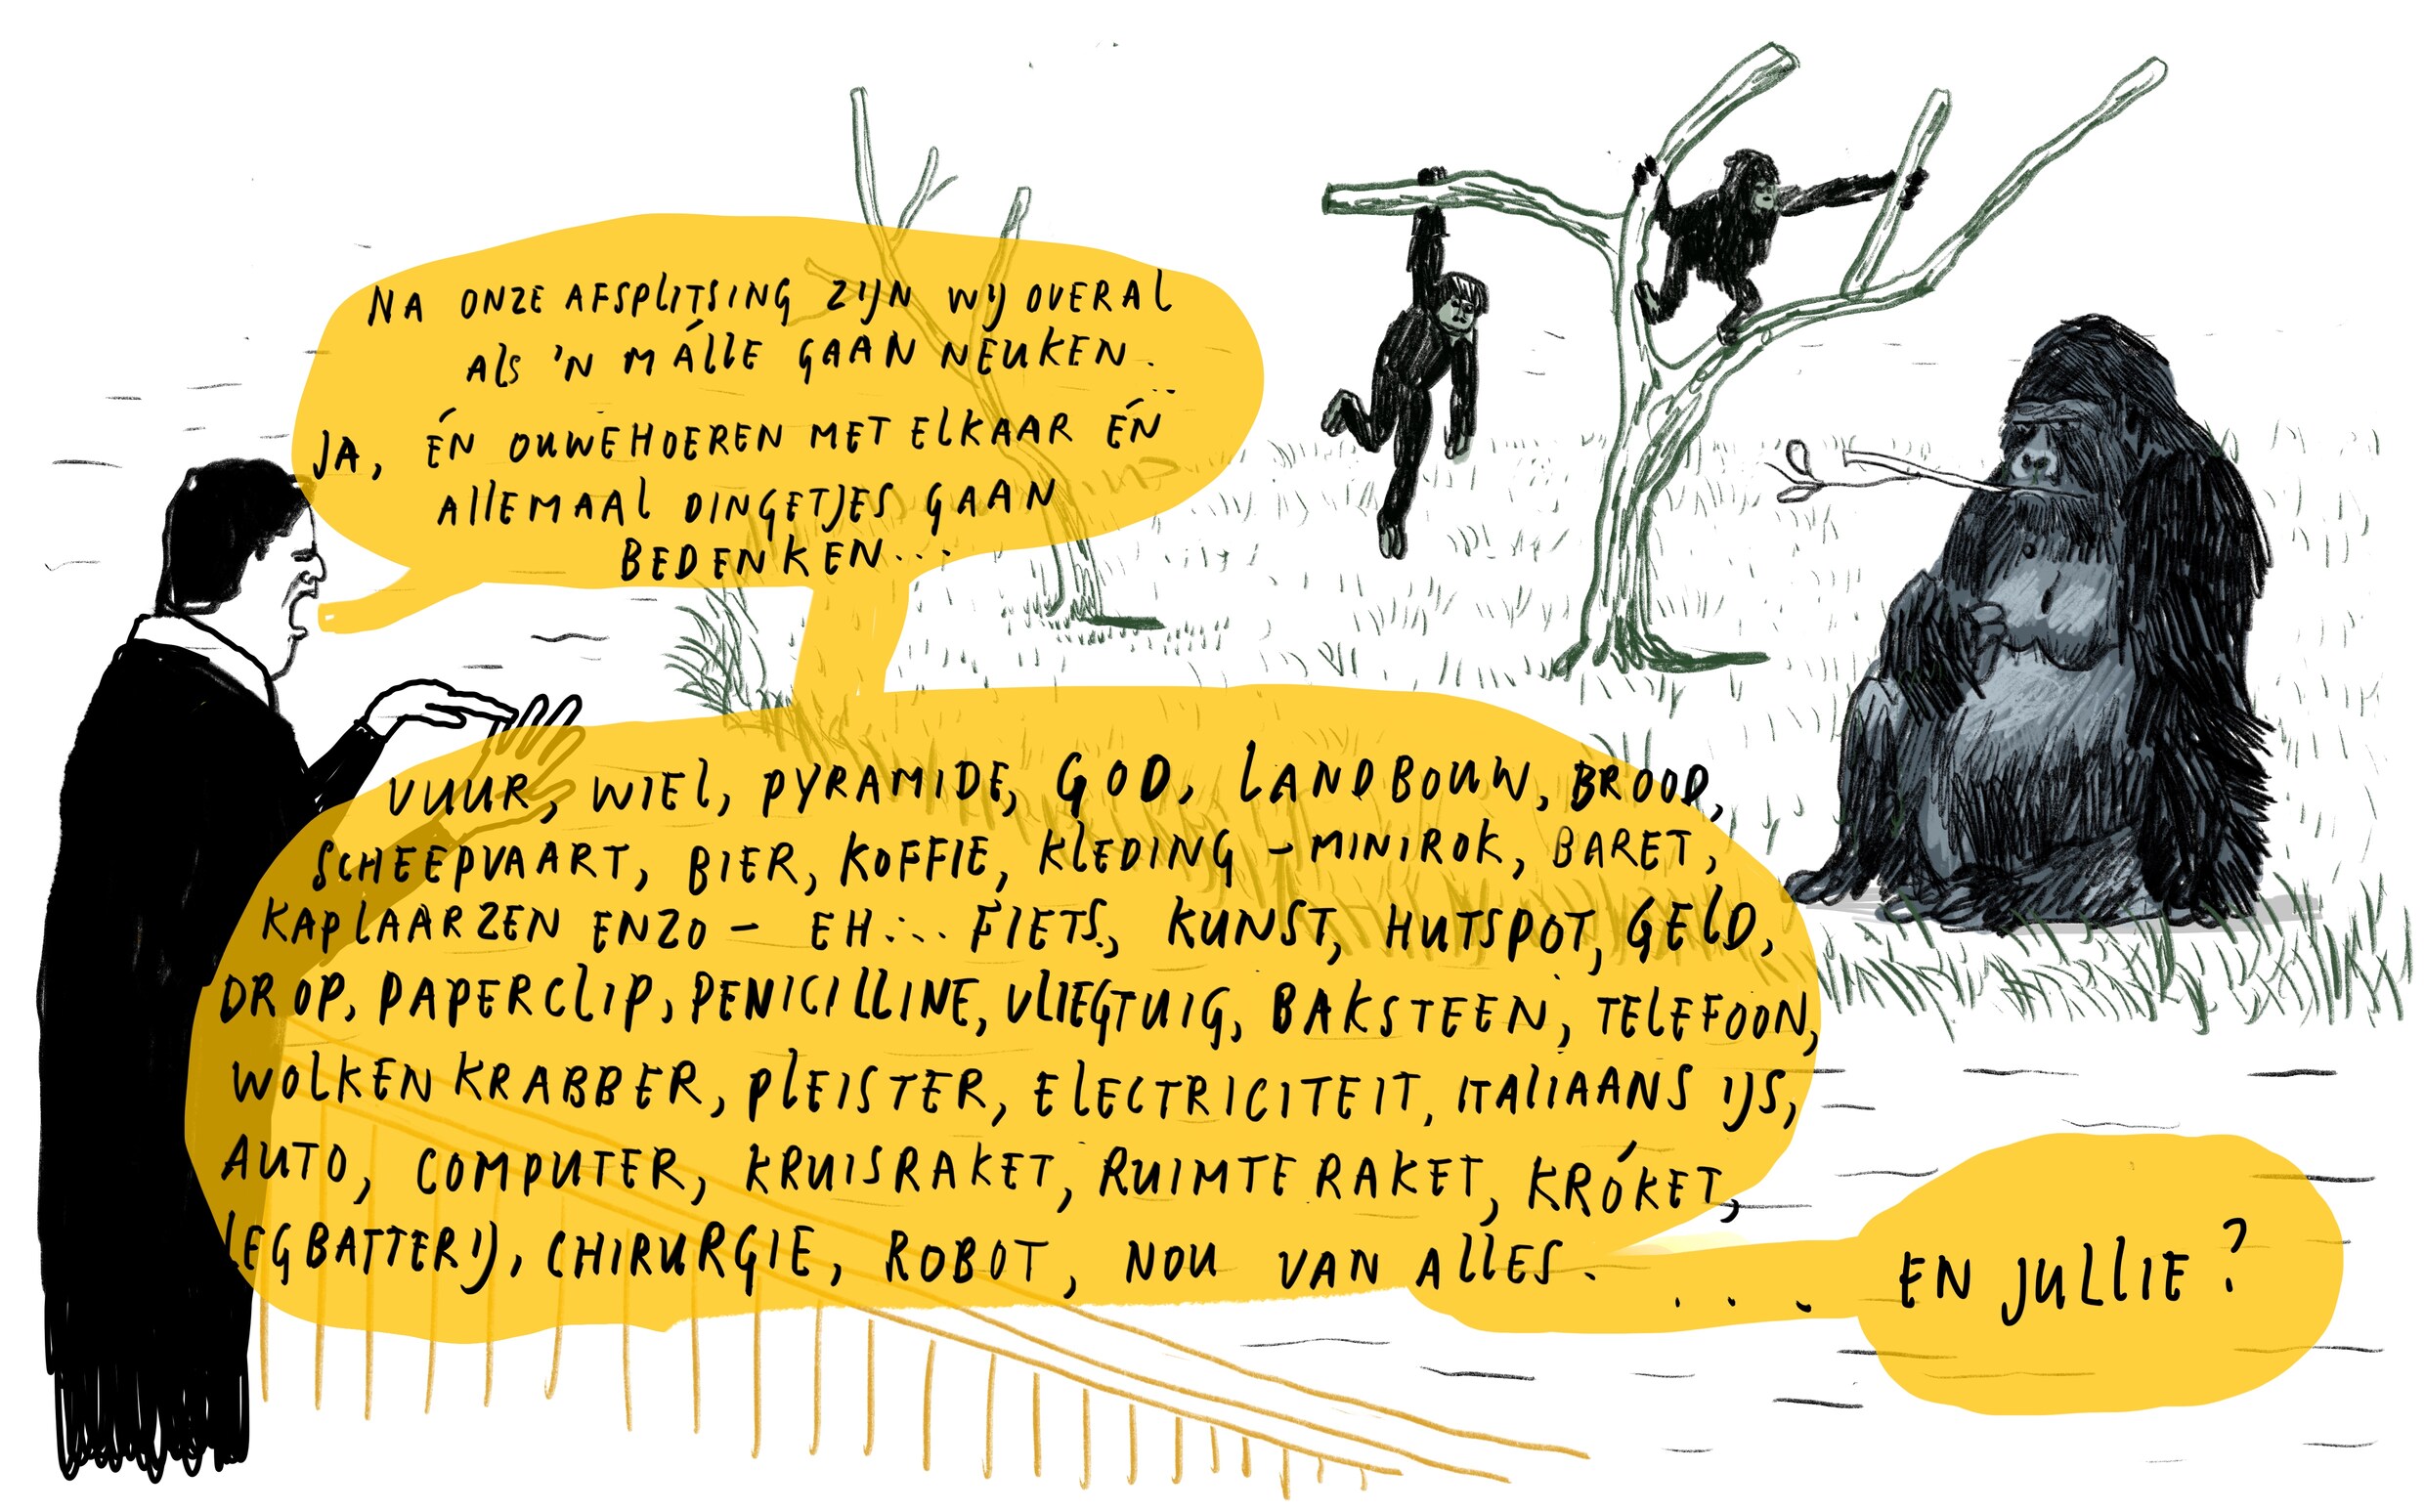 NA ONZE AFSPLITSING ZIJN WIJ OVERAL
ALS 'N MÁLLE GAAN NEUKEN.
JA, ÉN OUWEHOEREN MET ELKAAR ÉN
ALLEMAAL DINGETJES GAAN
BEDENKEN...
VUUR, WIEL, PYRAMIDE, GOD, LANDBOUW, BROOD,
SCHEEPVAART, BIER, KOFFIE, KLEDING - MINIROK, BARET,
KAPLAARZEN ENZO - EH... FIETS, KUNST, HUTSPOT, GELD,
DROP, PAPERCLIP, PENICILLINE, VLIEGTUIG, BAKSTEEN, TELEFOON,
WOLKENKRABBER, PLEISTER, ELECTRICITEIT, ITALIAANS IJS,
AUTO, COMPUTER, KRUISRAKET, RUIMTERAKET, KRÓKET,
LEGBATTERIJ, CHIRURGIE, ROBOT, NOU VAN ALLES.
... EN JULLIE?